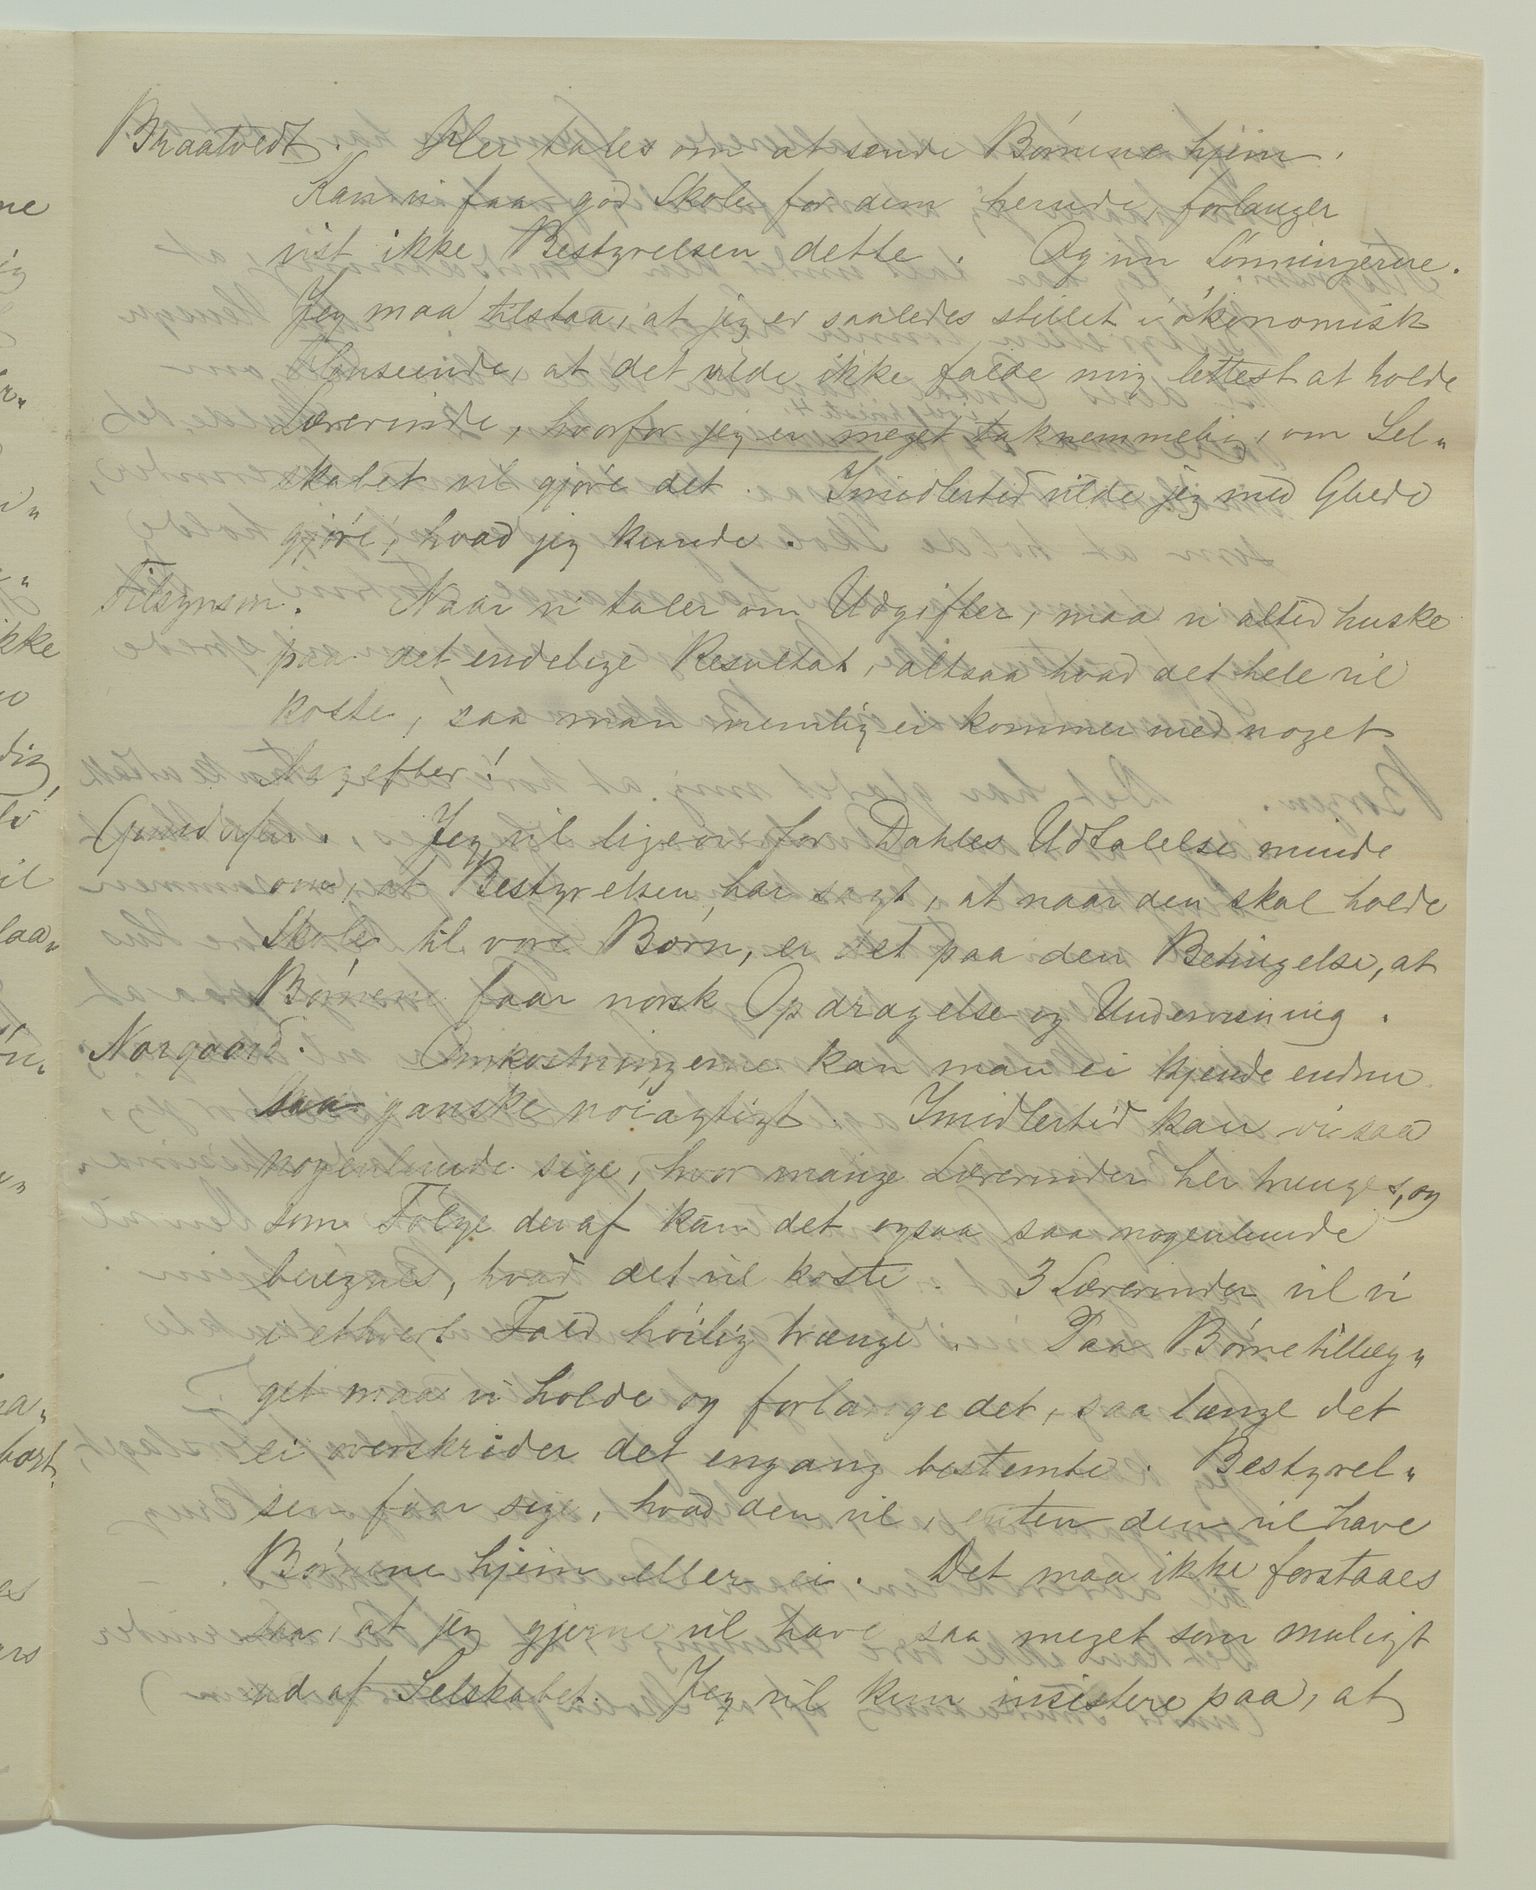 Braatvedt. Her tales om at sende Børnene hjem.
Kan vi faa god Skole for dem herude, forlanger
vist ikke Bestyrelsen dette. Og nu Lønningerne.
Jeg maa tilstaa, at jeg er saaledes stillet i økonomisk
Henseende, at det vilde ikke falde mig lettest at holde
Lærerinde, hvorfor jeg er meget taknemmelig, om Sel„
skabet vil gjøre det. Imidlertid vilde jeg med Glæde
gjøre, hvad jeg kunde.
Tilsynsm. Naar vi taler om Udgifter, maa vi altid huske
paa det endelige Resultat, altsaa hvad det hele vil
koste, saa man nemlig ei kommer med noget
Nyt efter!
Gundersen. Jeg vil ligeoverfor Dahles Udtalelse minde
om, at Bestyrelsen har sagt, at naar den skal holde
Skole til vore Børn, er det paa den Betingelse, at
Børnene faar norsk Opdragelse og Undervisning.
Norgaard. Omkostningerne kan man ei kjende endnu
saa ganske nøiagtigt. Imidlertid kan vi saa
nogenlunde sige, hvor mange Lærerinder her trenges, og
som Følge deraf kan det ogsaa saa nogenlunde
beregnes, hvad det vil koste. 3 Lærerinder vil vi
i ethvert Fald høilig trænge. Paa Børnetillæg„
get maa vi holde og forlange det, saa længe det
ei overskrider det engang bestemte. Bestyrel„
sen faar sige, hvad den vil, enten den vil have
Børnene hjem eller ei. Det maa ikke forstaaes
saa, at jeg gjerne vil have saa meget som muligt
ud af Selskabet. Jeg vil kun insistere paa, at